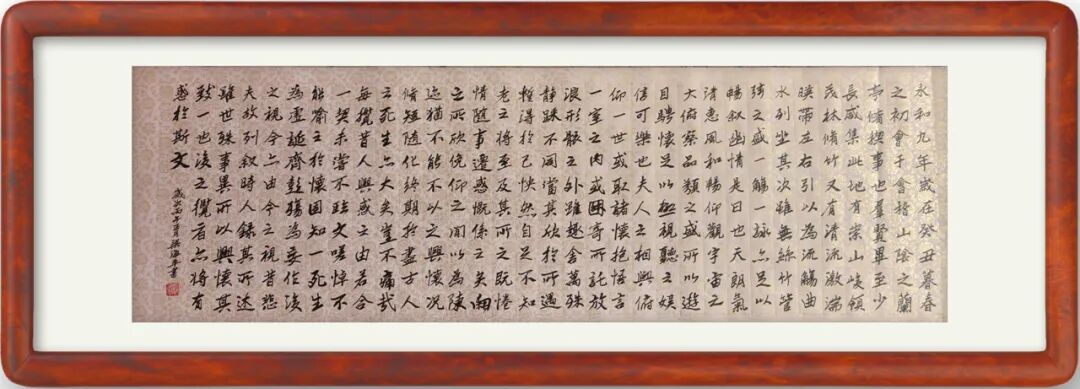 永和九年歲在癸丑暮春
之初會于會稽山陰之蘭
亭脩禊事也羣賢畢至少
長咸集此地有崇山峻領
茂林脩竹又有清流激湍
暎帶左右引以為流觴曲
水列坐其次雖無絲竹管
弦之盛一觴一詠亦足以
暢叙幽情是日也天朗氣
清惠風和暢仰觀宇宙之
大俯察品類之盛所以遊
目騁懷足以極視聽之娛
信可樂也夫人之相與俯
仰一世或取諸懷抱悟言
一室之內或因寄所託放
浪形骸之外雖趣舍萬殊
静躁不同當其欣於所遇
暫得於己怏然自足不知
老之將至及其所之既惓
情隨事遷感慨係之矣向
之所欣俛仰之間以為陳
迹猶不能不以之興懷況
脩短隨化終期於盡古人
云死生亦大矣豈不痛哉
每攬昔人興感之由若合
一契未嘗不臨文嗟悼不
能喻之於懷固知一死生
為虛誕齊彭殤為妄作後
之視今亦由今之視昔悲
夫故列叙時人錄其所述
雖世殊事異所以興懷其
致一也後之攬者亦將有
感於斯文
歲次丙午